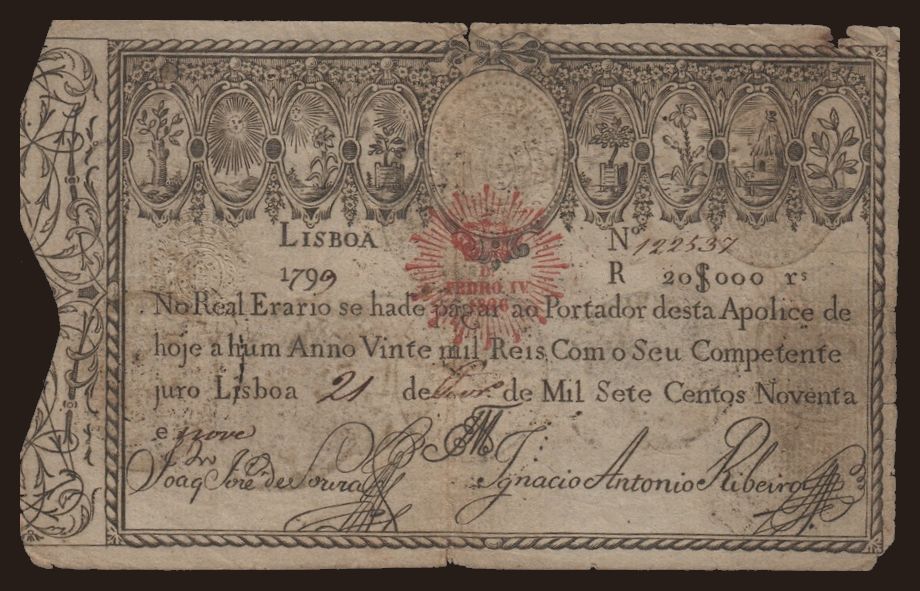 LISBOA
Nº 122537
1799
R 20$000 rs
D.
PEDRO IV
1826
No Real Erario se hade pagar ao Portador desta Apolice de
hoje a hum Anno Vinte mil Reis Com o Seu Competente
juro Lisboa 21 de de Mil Sete Centos Noventa
e nove
Joaq José de Souza
Ignacio Antonio Ribeiro